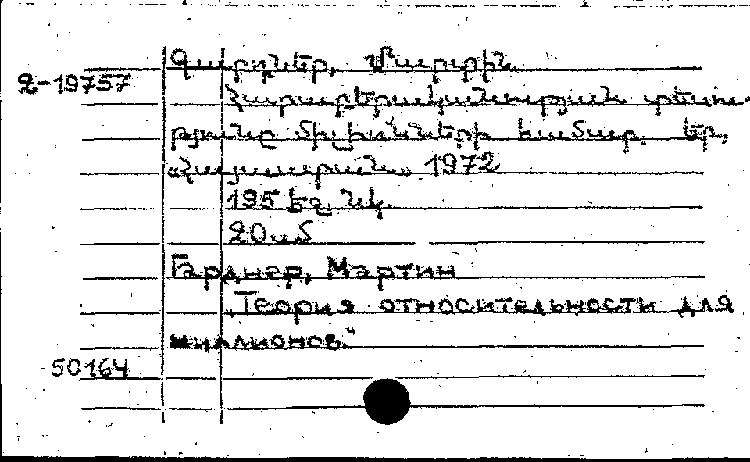 Գարդներ, Մարտին
2-19757
Հարաբերականության տեսու-
թյունը միլիոնների համար. Եր.,
«Հայաստան» 1972
195 էջ նկ.
20սմ
Гарднер, Мартин
„Теория относительности для
миллионов."
50164